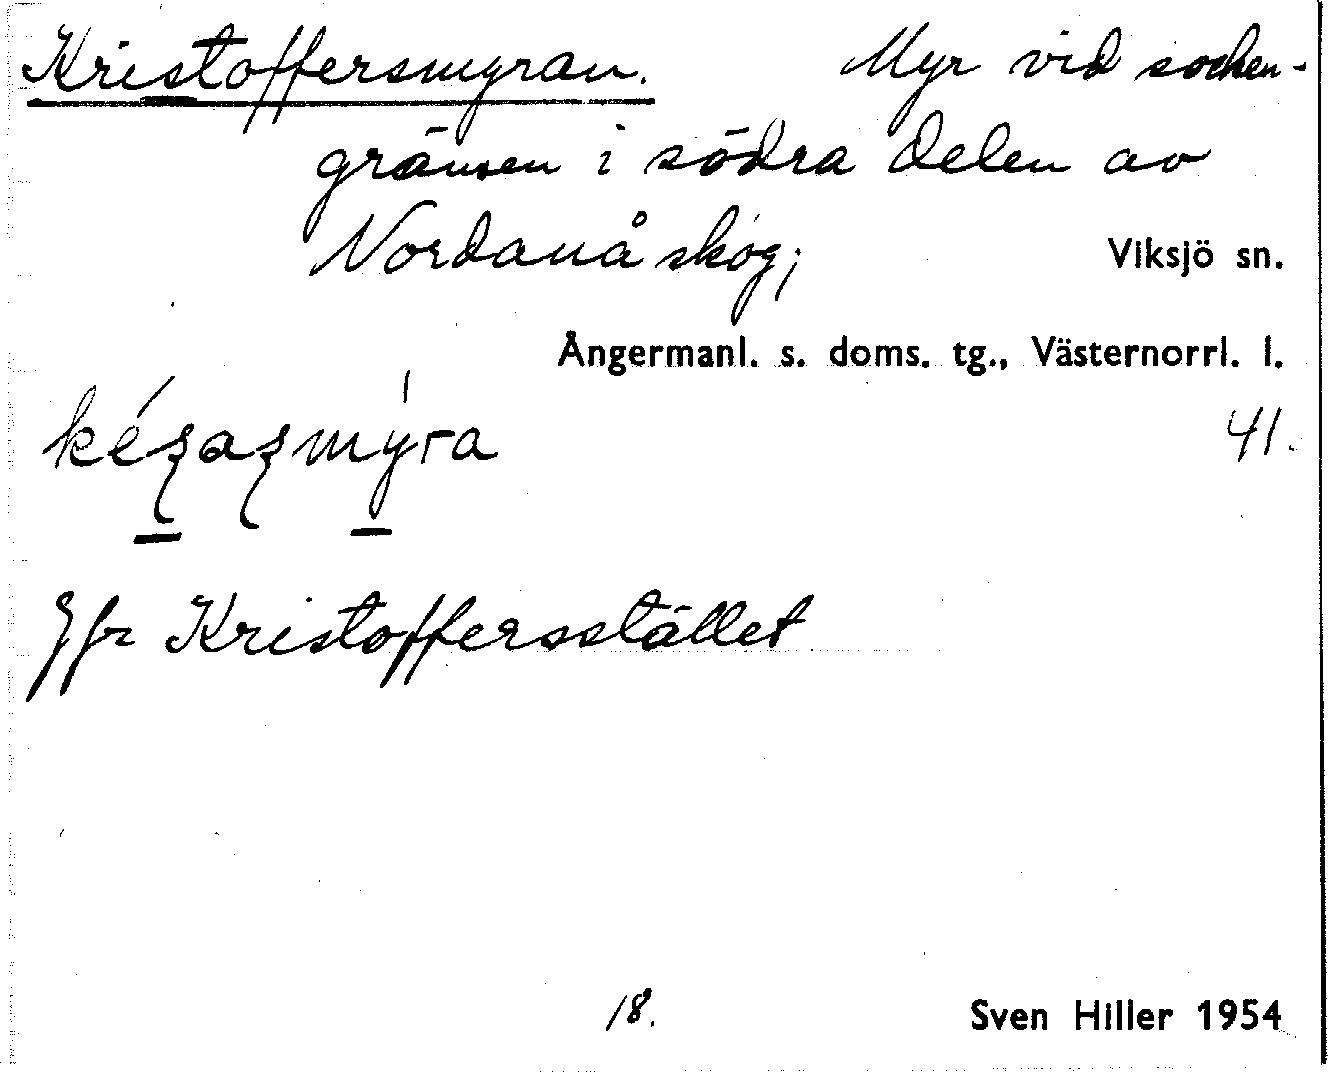 Kristoffersmyran. Myr vid socken-
gränsen i södra delen av
Nordanå skog; Viksjö sn.
Ångermanl. s. doms. tg., Västernorrl. l.
41.
Jfr Kristoffersstället
18. Sven Hiller 1954